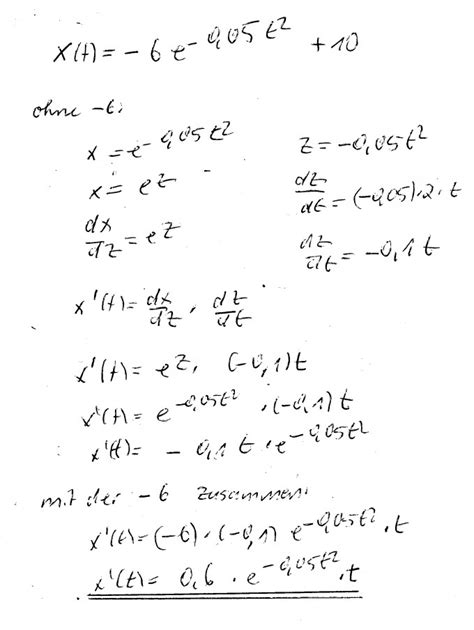 x(t) = - 6 e^{-0,05t^2} + 10
ohne -6:
x = e^{-0,05t^2}
z = -0,05t^2
x = e^z
dz/dt = (-0,05)·2·t
dx/dz = e^z
dz/dt = -0,1t
x'(t) = dx/dz · dz/dt
x'(t) = e^z · (-0,1)t
x'(t) = e^{-0,05t^2} · (-0,1)t
x'(t) = - 0,1 t · e^{-0,05t^2}
mit der -6 zusammen:
x'(t) = (-6)·(-0,1) e^{-0,05t^2} · t
x'(t) = 0,6 · e^{-0,05t^2} · t